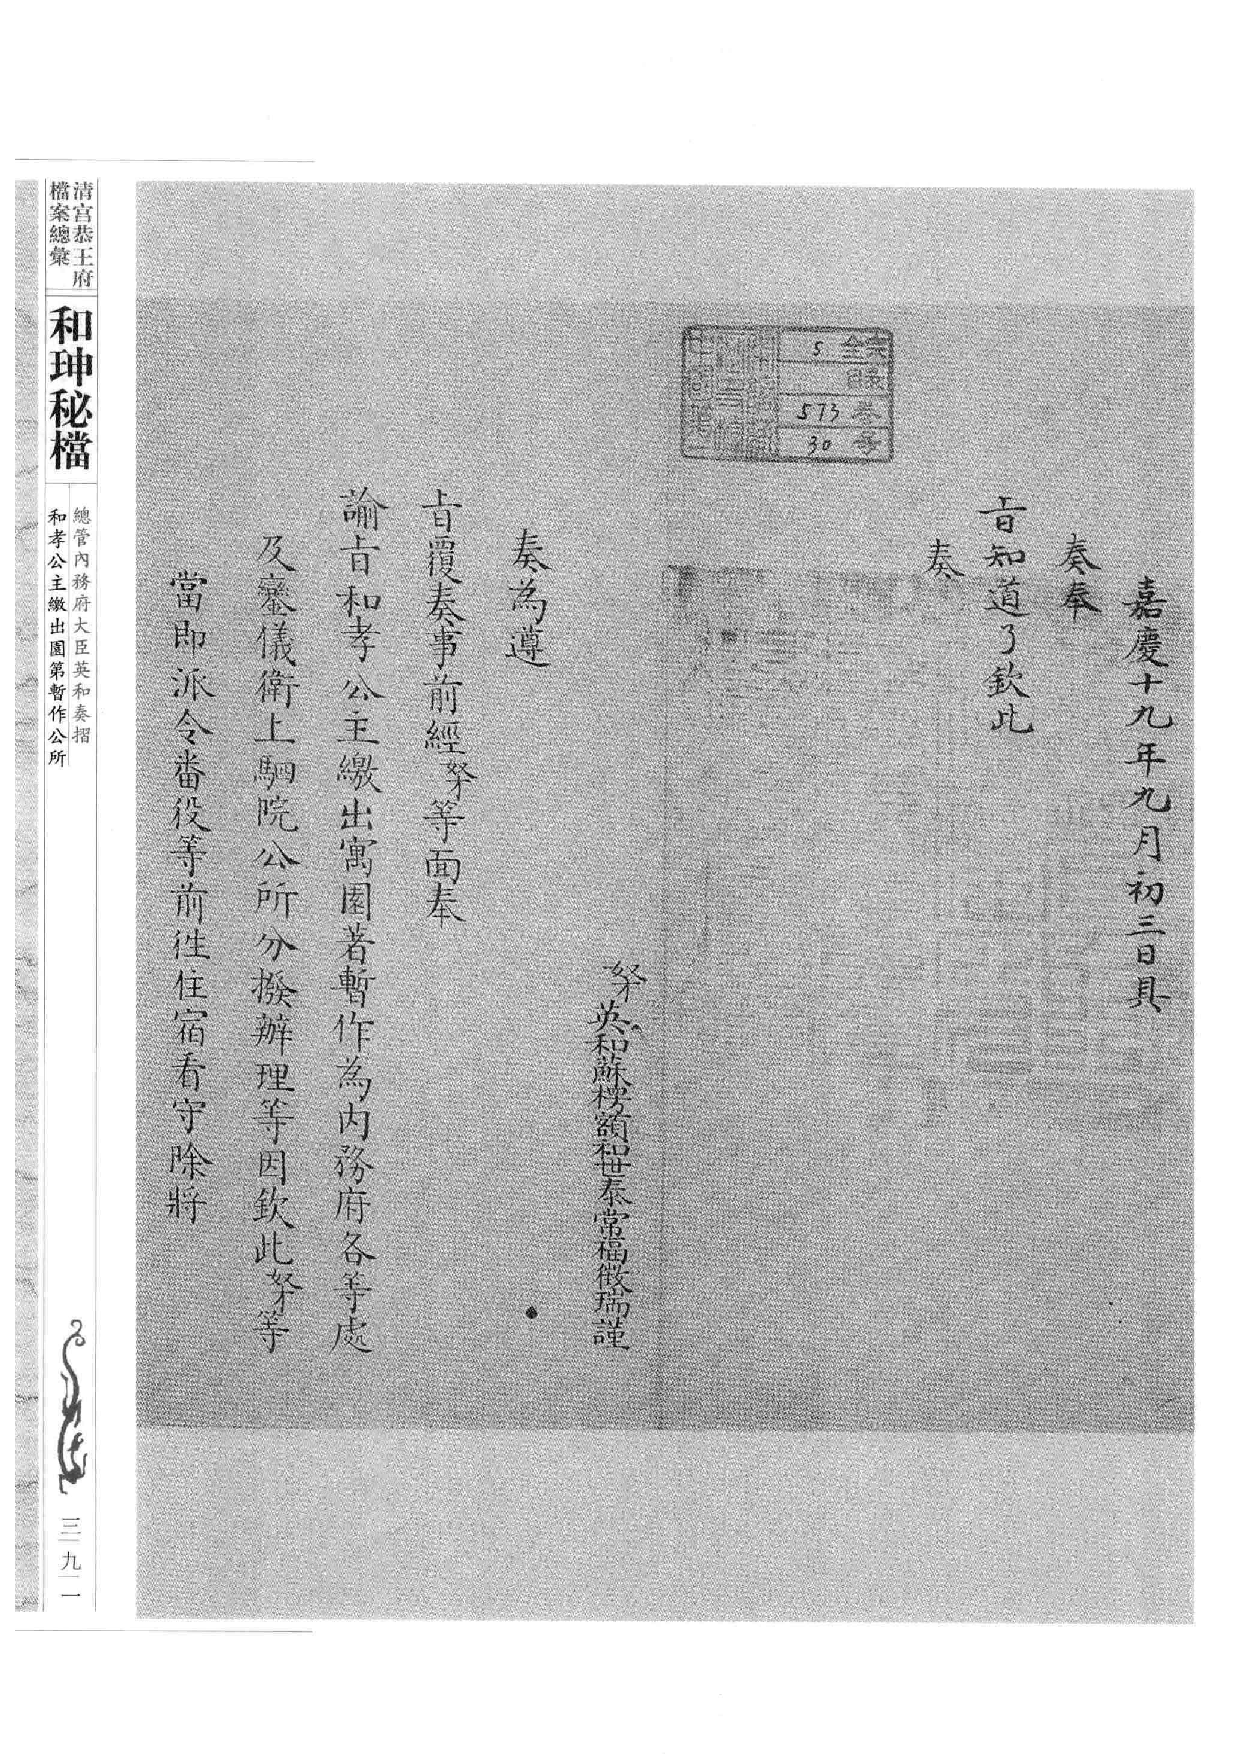 嘉慶十九年九月初三日具
奏奉
旨知道了欽此
奏
全宗 5
目录
卷号 573
号 30
奴才英和蘇楞額和世泰常福徵瑞謹
奏為遵
旨覆奏事前經奴才等面奉
諭旨和孝公主繳出寓園著暫作為内務府各等處
及鑾儀衛上駟院公所分撥辦理等因欽此奴才等
當即派令番役等前往住宿看守除將
清宮恭王府
檔案總彙
和珅秘檔
總管內務府大臣英和奏摺
和孝公主繳出園第暫作公所
三九一